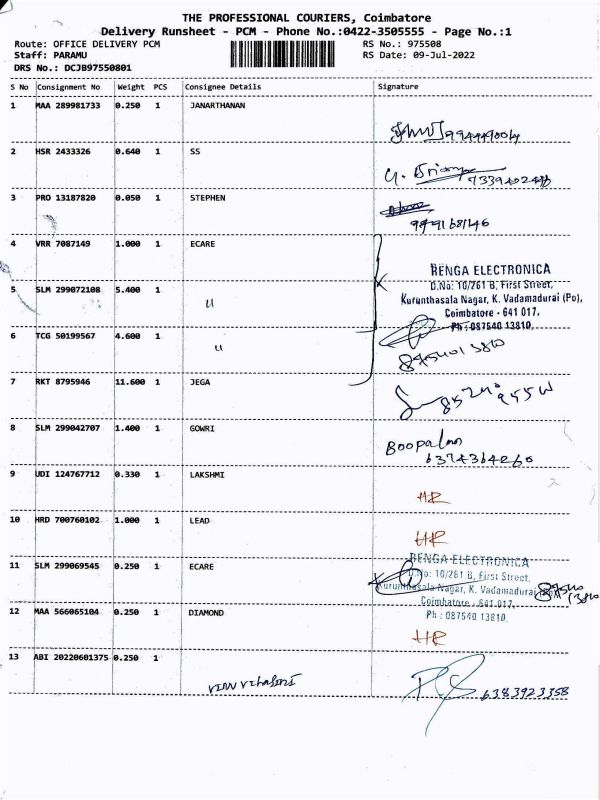 THE PROFESSIONAL COURIERS, Coimbatore
Delivery Runsheet - PCM - Phone No.:0422-3505555 - Page No.:1
Route: OFFICE DELIVERY PCM RS No.: 975508
Staff: PARAMU RS Date: 09-Jul-2022
DRS No.: DCJB97550801
S No Consignment No Weight PCS Consignee Details Signature
1 MAA 289981733 0.250 1 JANARTHANAN
2 HSR 2433326 0.640 1 SS
3 PRO 13187820 0.050 1 STEPHEN
4 VRR 7087149 1.000 1 ECARE
RENGA ELECTRONICA
D.No: 10/261 B, First Street,
5 SLM 299072108 5.400 1 Kurunthasala Nagar, K. Vadamadurai (Po),
Coimbatore - 641 017.
Ph : 087540 13810.
6 TCG 50199567 4.600 1
875401 3810
7 RKT 8795946 11.600 1 JEGA
8 SLM 299042707 1.400 1 GOWRI
Boopalan
6374364260
9 UDI 124767712 0.330 1 LAKSHMI
HR
10 HRD 700760102 1.000 1 LEAD
HR
RENGA ELECTRONICA
11 SLM 299069545 0.250 1 ECARE D.No: 10/261 B, First Street,
Kurunthasala Nagar, K. Vadamadurai
Coimbatore - 641 017.
12 MAA 566065104 0.250 1 DIAMOND Ph : 087540 13810.
HR
13 ABI 20220601375 0.250 1
6383923358